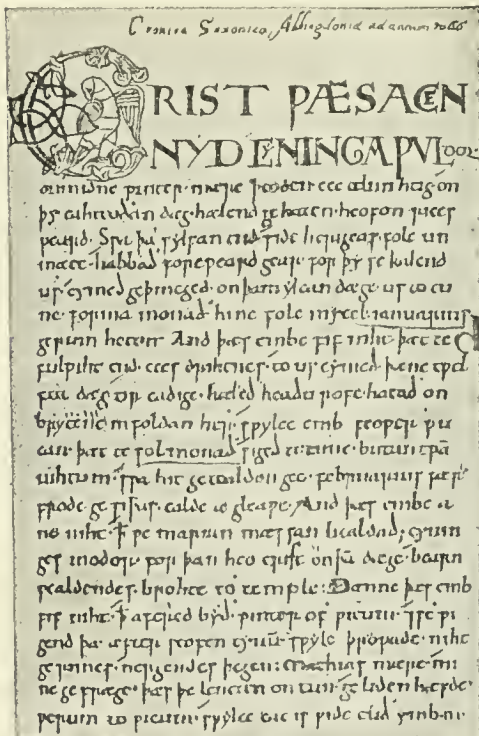 Cronica Saxonica, Abbingdoniæ ad annum 1066
CRIST ǷÆS ACEN
NYD CYNINGA ǷUL dor
on midne ƿinter· mære þeoden ece ælmihtig· on
þy eahteoðan dæg· hælend ge haten· heofon rices
ƿeard· Sƿa þa sylfan tiid side herigeas· folc un
mæte· habbað foreƿeard gear· for þy se kalend
us cymeð geþincged· on þam ylcan dæge· us to tu
ne· forma monað hine folc mycel· ianuarius
gerum heton· And þæs embe fif niht· þæt te
fulƿiht tiid· eces drihtnes· to us cymeð· þæne tƿel
fta dæg tir eadige· hæleð heaðu rofe· hatað on
brytene in foldan her· sƿylce emb feoƿer ƿu
can· þæt te solmonað sigeð to tune· butan tƿā
nihtum· sƿa hit getealdon geo· februarius fær·
frode ge siþas· ealde æ gleaƿe· And þæs embe a
ne niht· ꝥ ƿe marian mæssan healdað; cynin
ges modor· for þan heo crist on þā dæge· bearn
ƿealdendes· brohte to temple· Ðænne þæs emb
fif niht· ꝥ afered byð· ƿinter of ƿicum· ⁊ se ƿi
gend þa· æfter seofen tynū· sƿylc þroƿade· niht
gerimes· nergendes þegen· Mathias mære· mi
ne ge fræge· þæs þe lencten on tun· ge liden hæfde·
ƿerum to ƿicum· sƿylce eac is ƿide cuð ymb